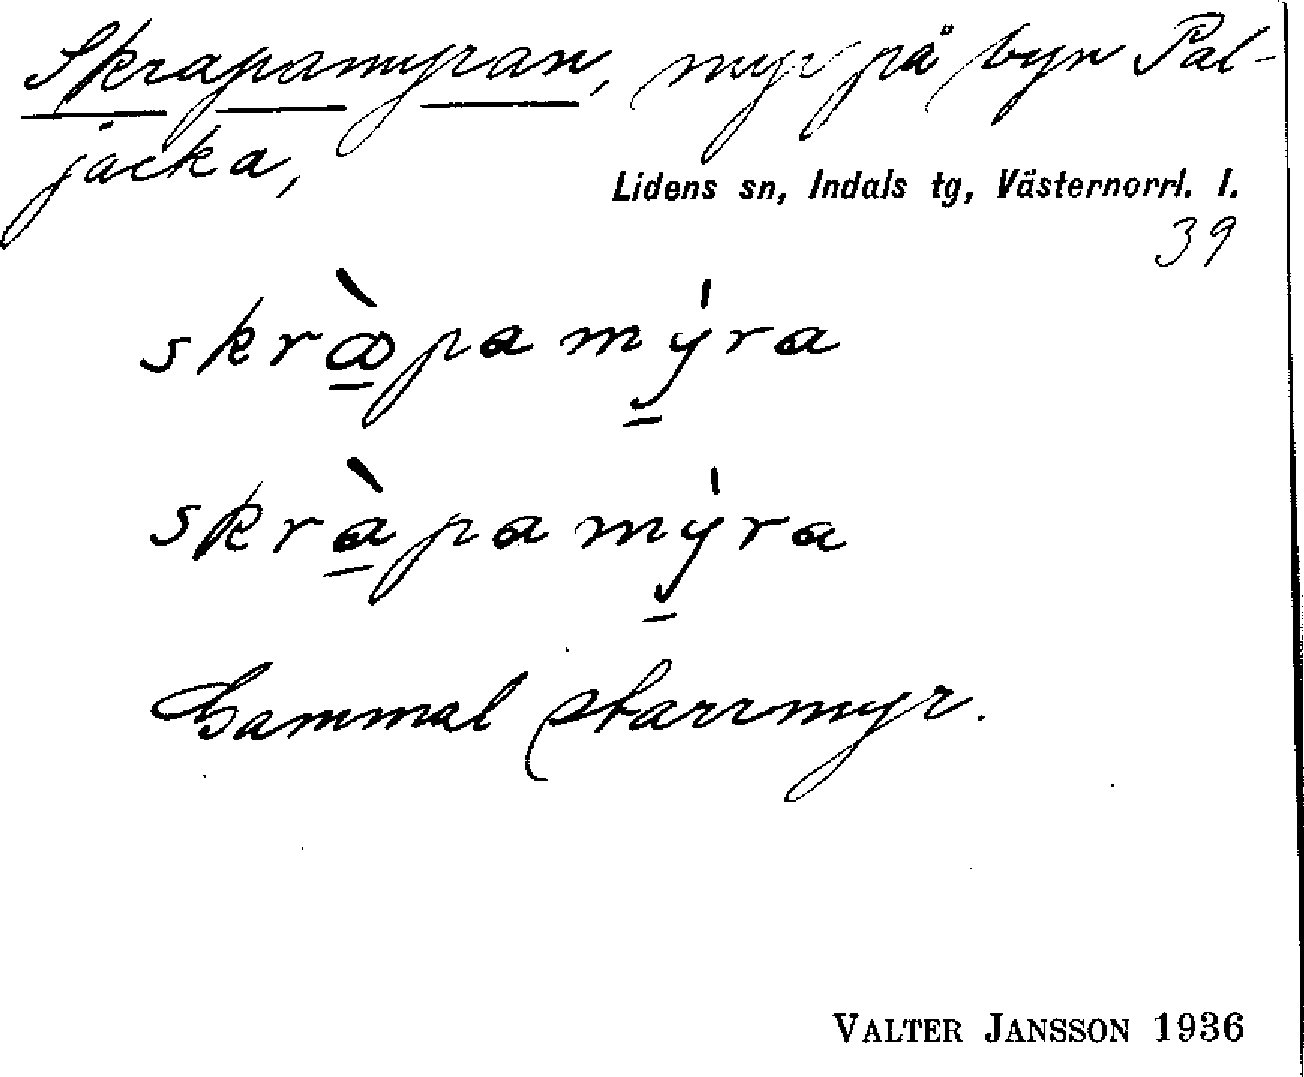 Skrapamyran, myr på byn Pal-
jacka,
Lidens sn, Indals tg, Västernorrl. l.
39
skràpamýra
skràpamýra
Gammal starrmyr.
VALTER JANSSON 1936